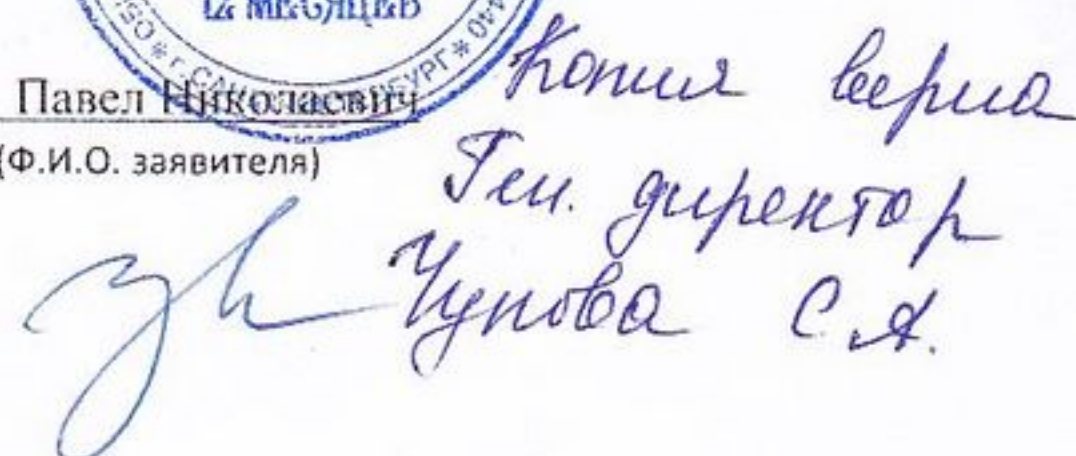 12 МЕСЯЦЕВ
Павел Николаевич
(Ф.И.О. заявителя)
Копия верна
Ген. директор
Чупова С.А.